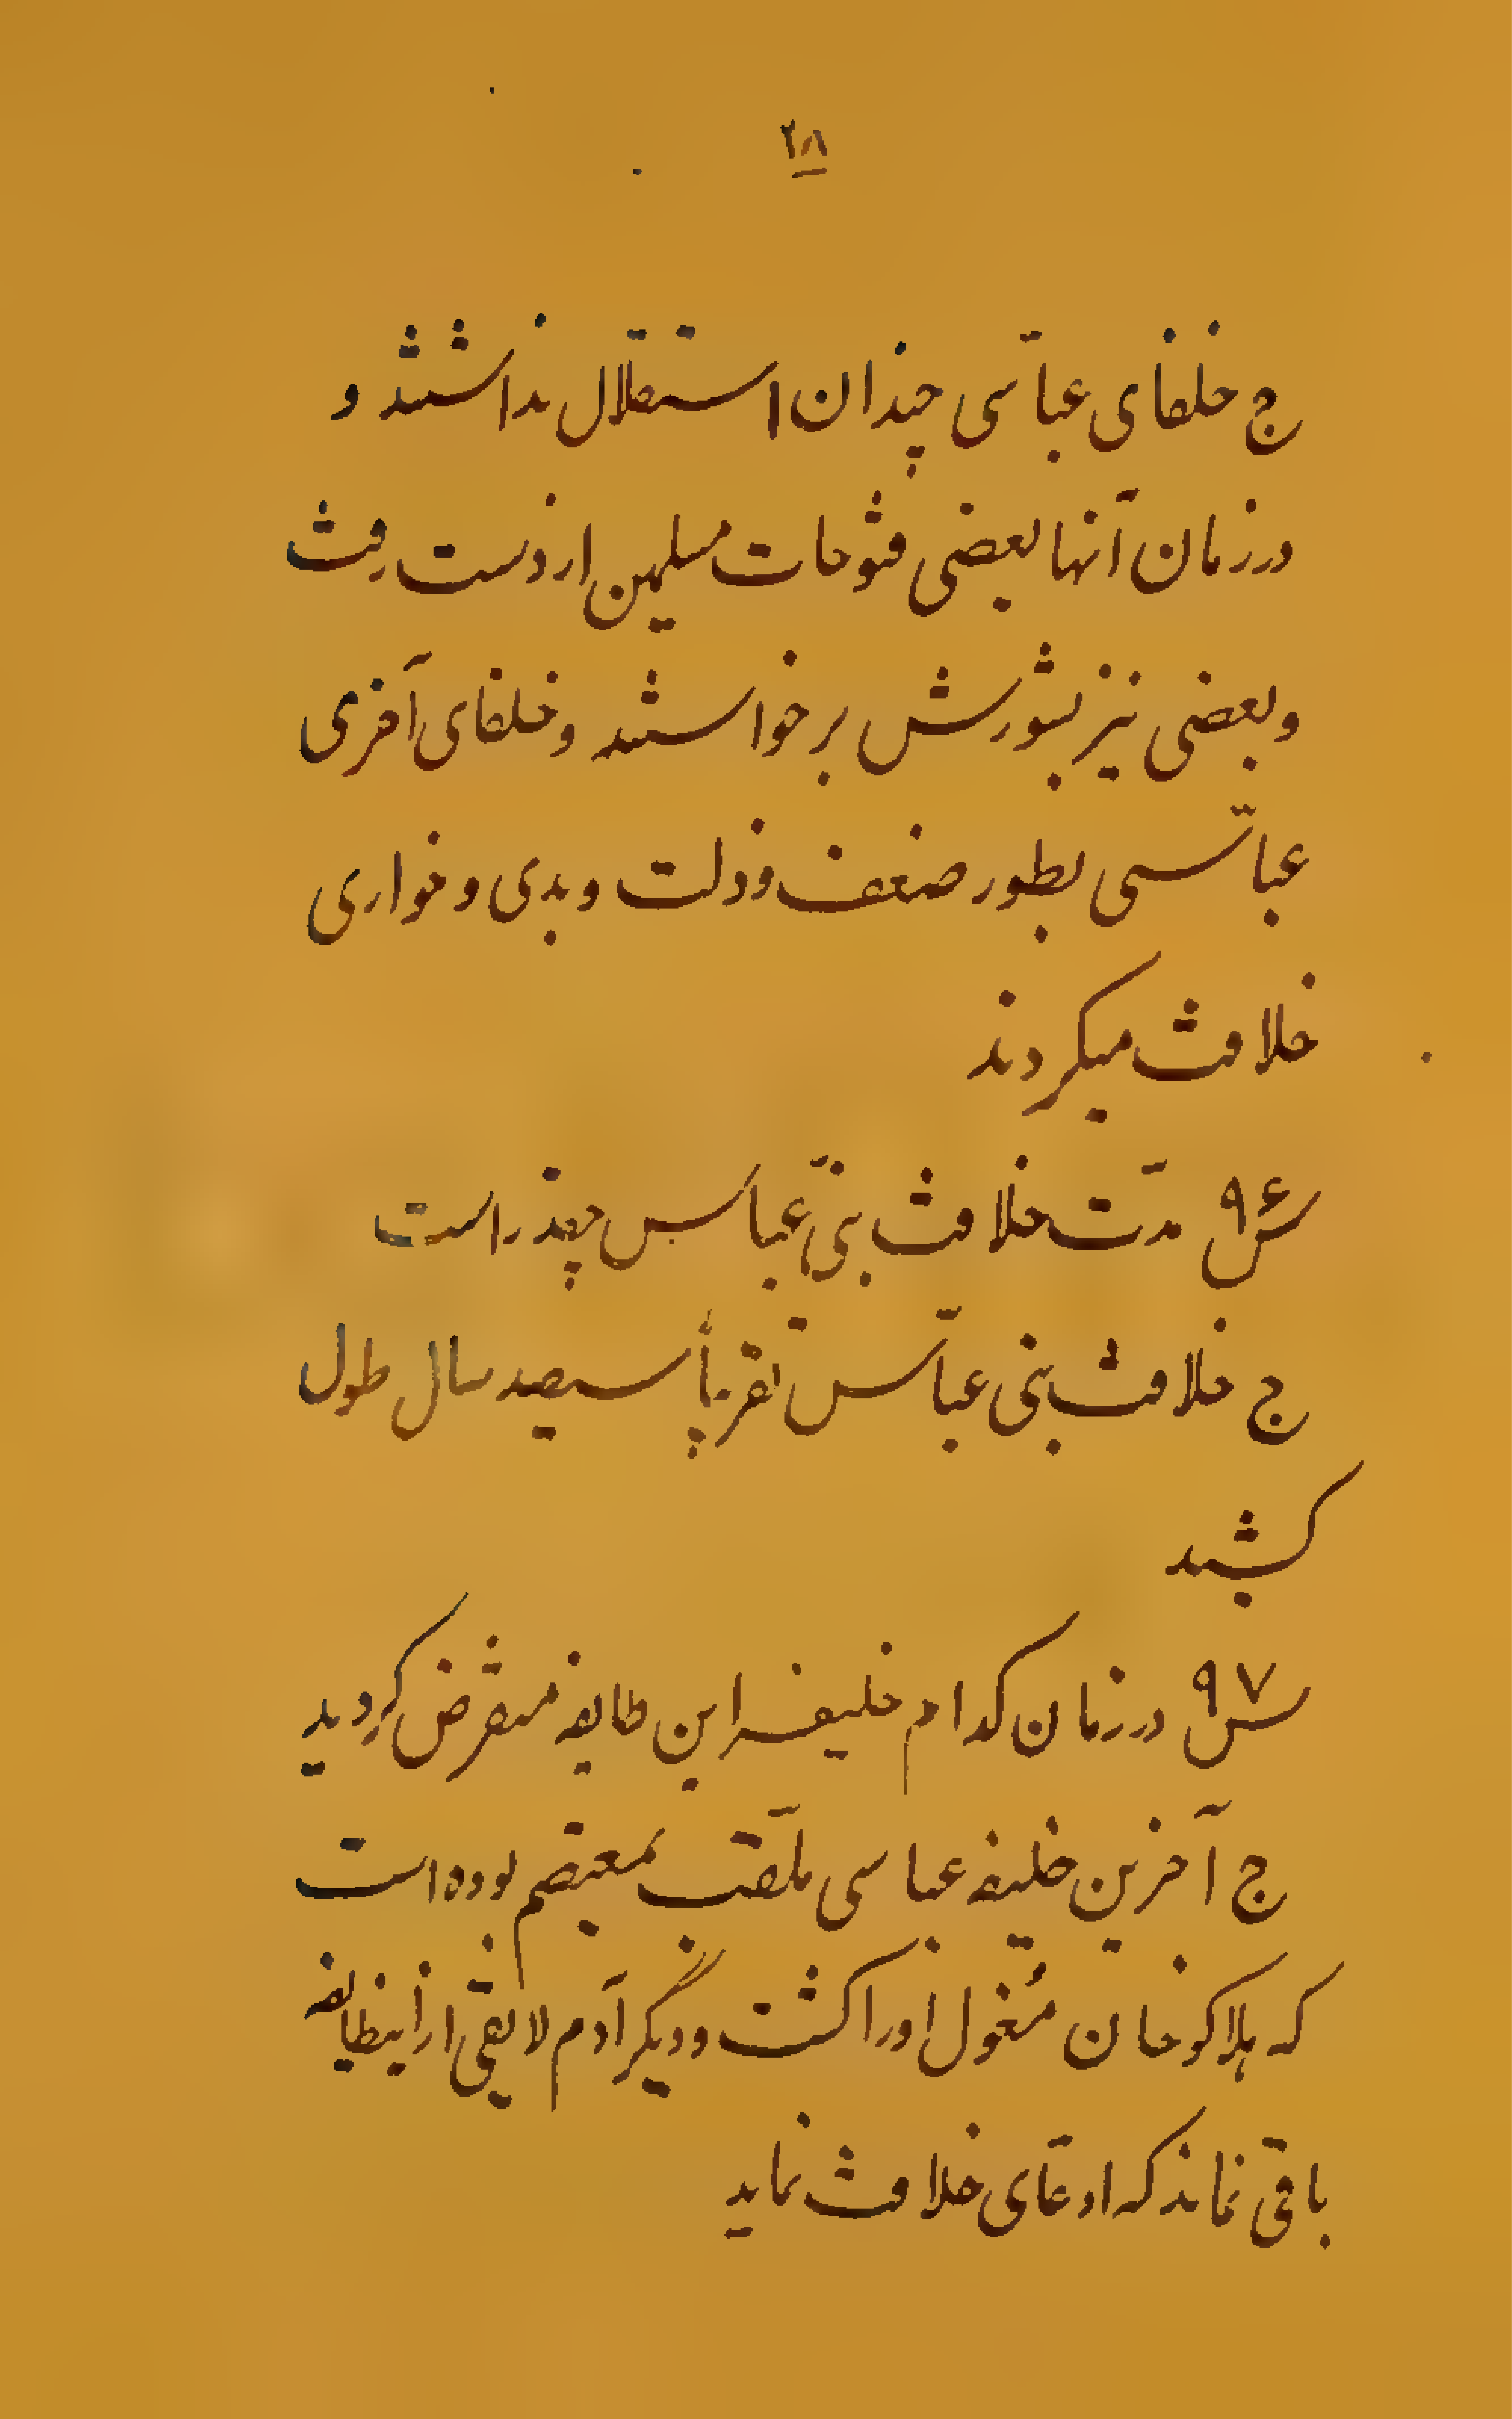 ۲۸
ج خلفای عباّسی چندان استقلال نداشتند و
در زمان آنها بعضی فتوحات مسلمین از دست رفت
و بعضی نیز بشورش برخواستند و خلفای آخری
عباّسی بطور ضعف و ذلت و بدی و خواری
خلافت میکردند
س۹۶ مدّت خلافت بنی عباّس چقدر است
ج خلافت بنی عباّس تقریباً سیصد سال طول
کشید
س۹۷ در زمان کدام خلیفه این طایفه منقرض کردید
ج آخرین خلیفه عباسی ملقّب بمعتصم بوده است
که هلاکو خان مُغول او را کشت و دیگر آدم لایقی از اینطایفه
باقی نماند که ادعّای خلافت نماید